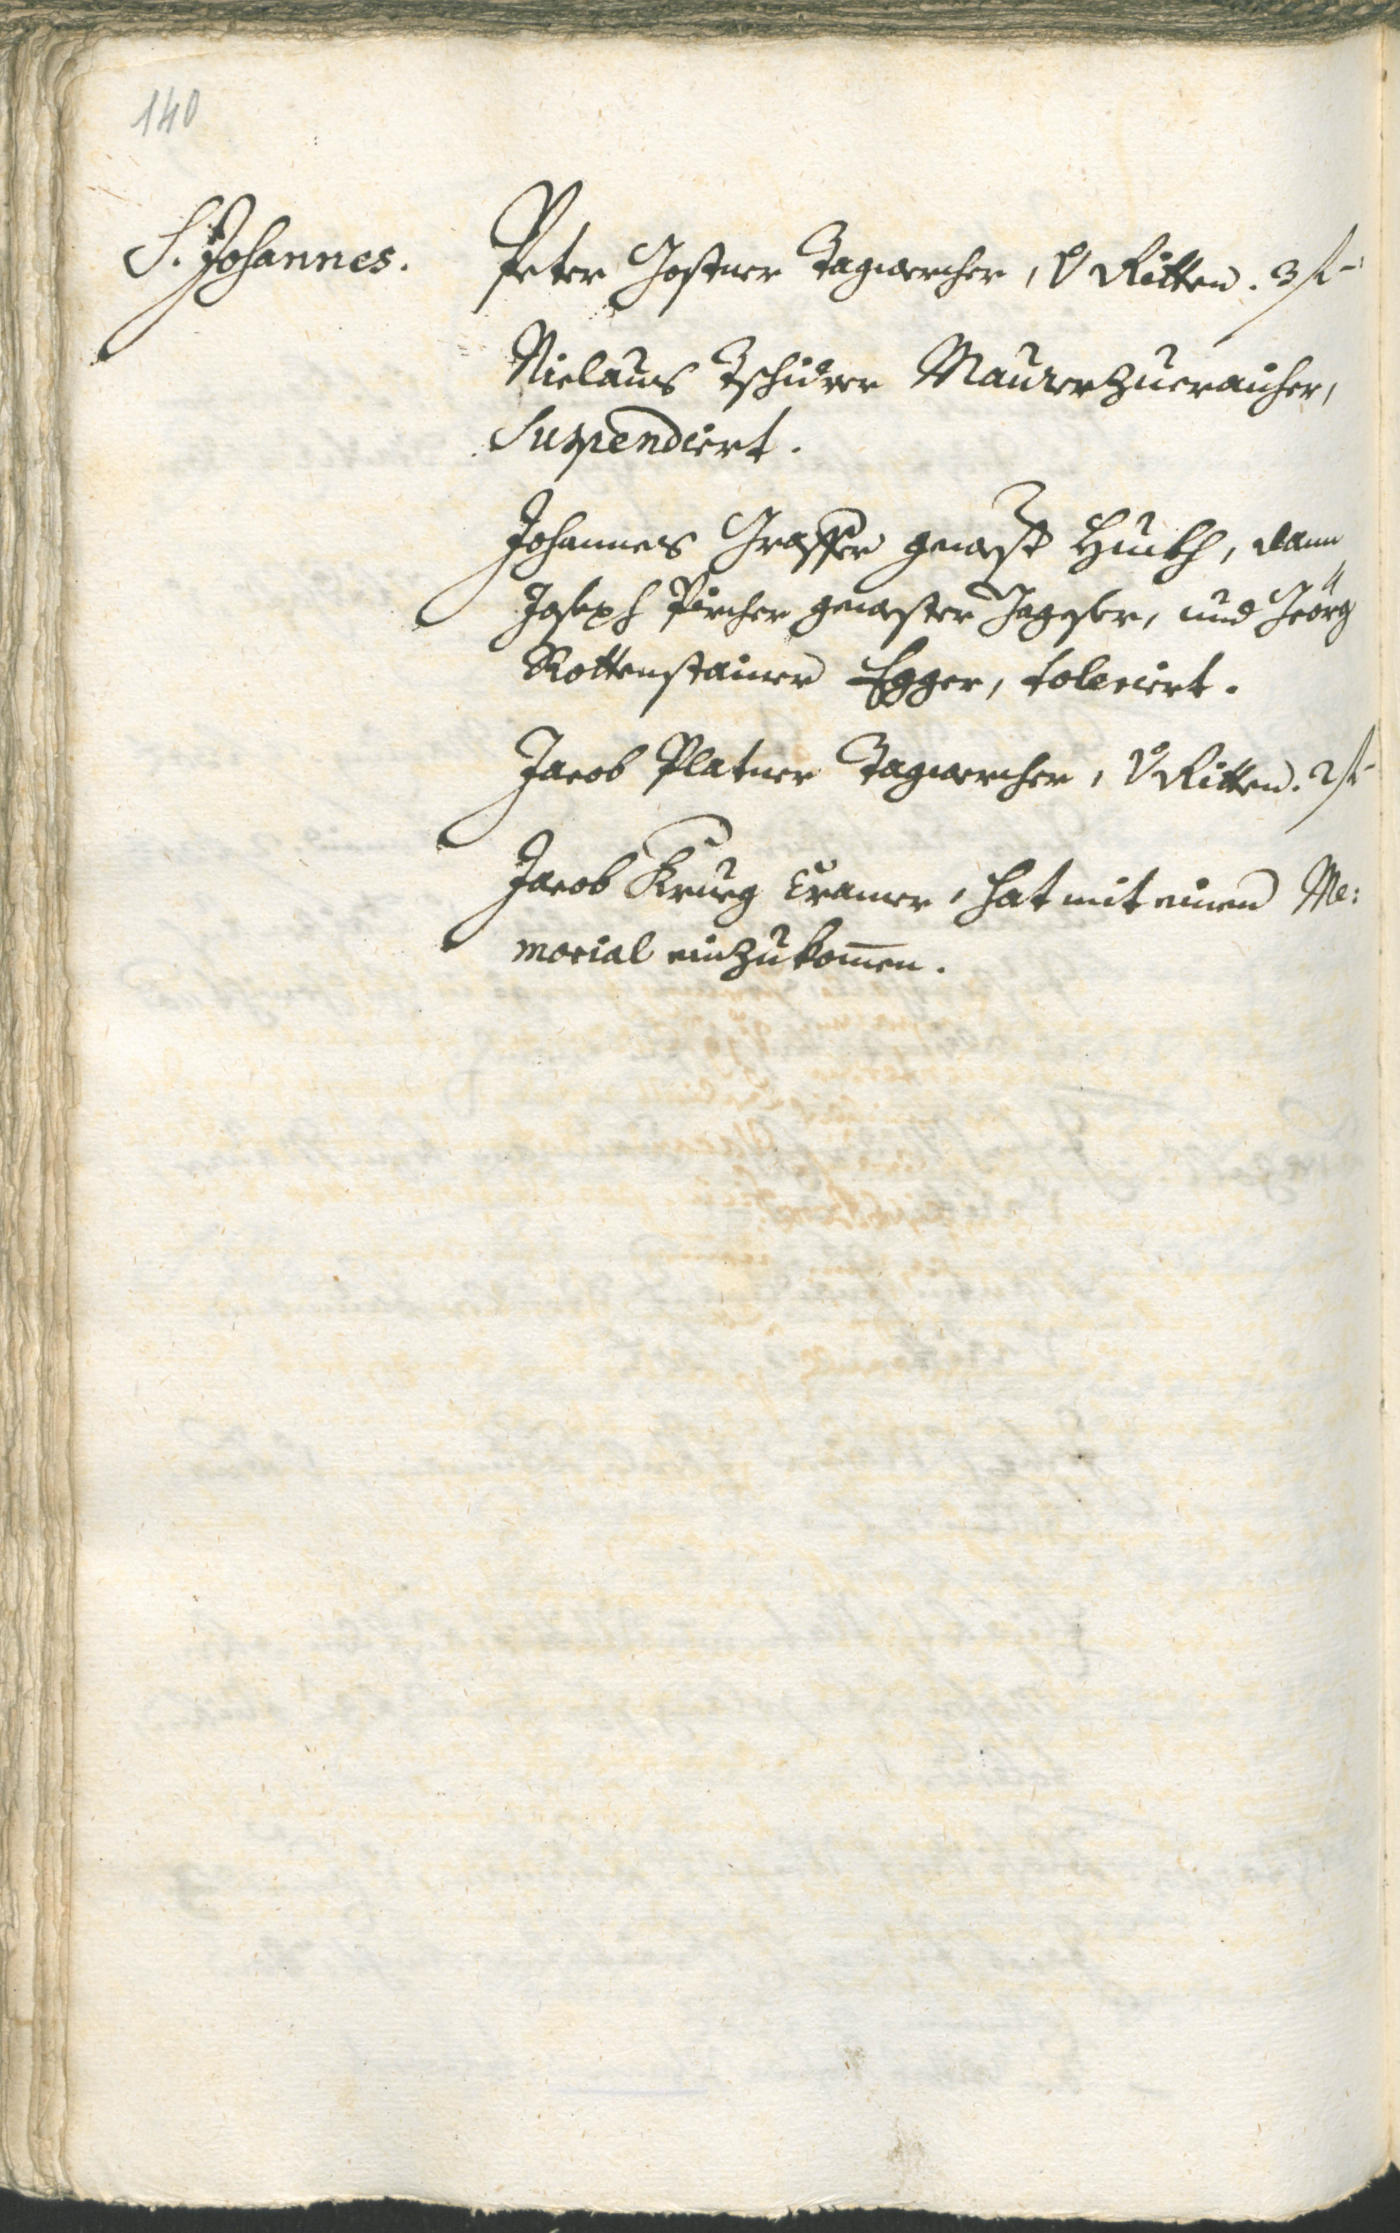 140
S. Johannes.
Peter Gostner Tagwercher, V Ritten. 3 f -
Niclaus Tschurer Maurerzueraicher,
Suspendiert.
Johannes Grasser gewest Huith, dann
Joseph Pircher gewester Jagister, und Geörg
Rottenstainer Egger, toleriert.
Jacob Platner Tagwercher, V Ritten. 2 f -
Jacob Krueg Cramer, hat mit einem Me:
morial einzukomen.